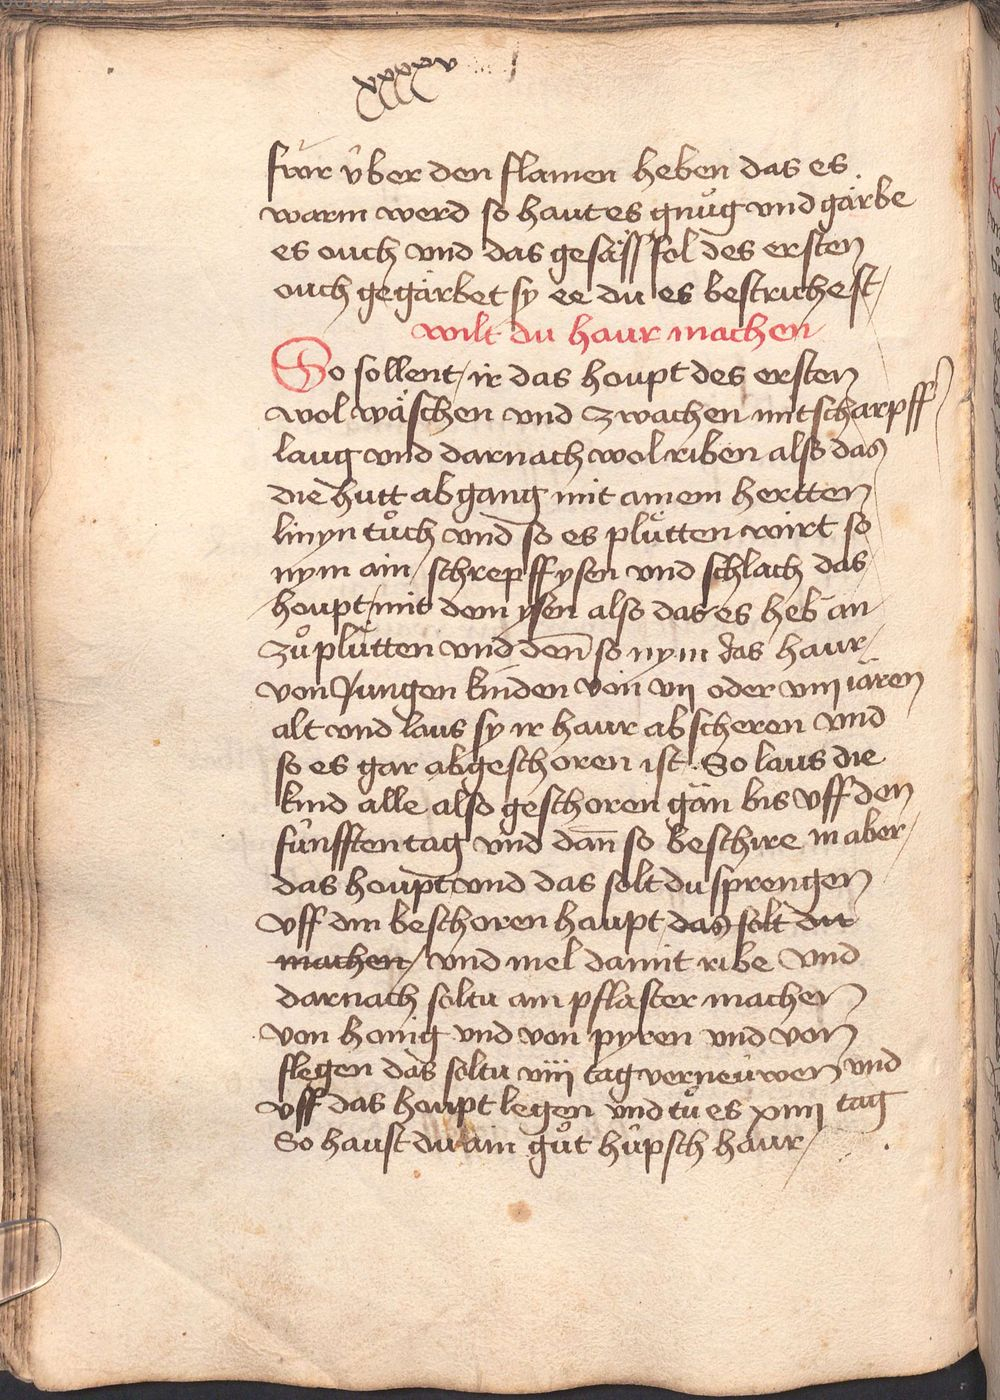 xxxxv
fwr v̂ber den flamen heben das es
warm werd so haut es gnuͦg vnd gärbe
es ouch vnd das gefäss sol des ersten
ouch gegärbet sy ee du es bestrichest /
wilt du haur machen
So sollent / ir das houpt des ersten
wol wäschen vnd zwachen mit scharpff
laug vnd darnach wol riben also das
die hutt abgang mit ainem hertten
linyn tuͦch vnd so es pluͤtten wirt so
nym ain / schrepffysen vnd schlach das
houpt / mit dem ysen also das es heb an
zuͦ pluͤtten vnd den̄ so nym das haur /
von Jungen kinden von vij oder viij iären
alt vnd laus sy ir haur abscheren vnd
so es gar abgeschoren ist . So laus die
kind alle also geschoren gän bis vff den
fünfften tag vnd dan̄ so beschire in aber /
das houpt vnd das solt du sprengen
vff din beschoren haupt / das solt du
machen / vnd mel damit ribe vnd
darnach soltu ain pflaster machen
von honig vnd von pyren vnd von
flegen das soltu viij tag verneuwen vnd
vff das houpt legen vnd tuͦ es xiiij tag
So haust du ain guͦt hüpsch haur /